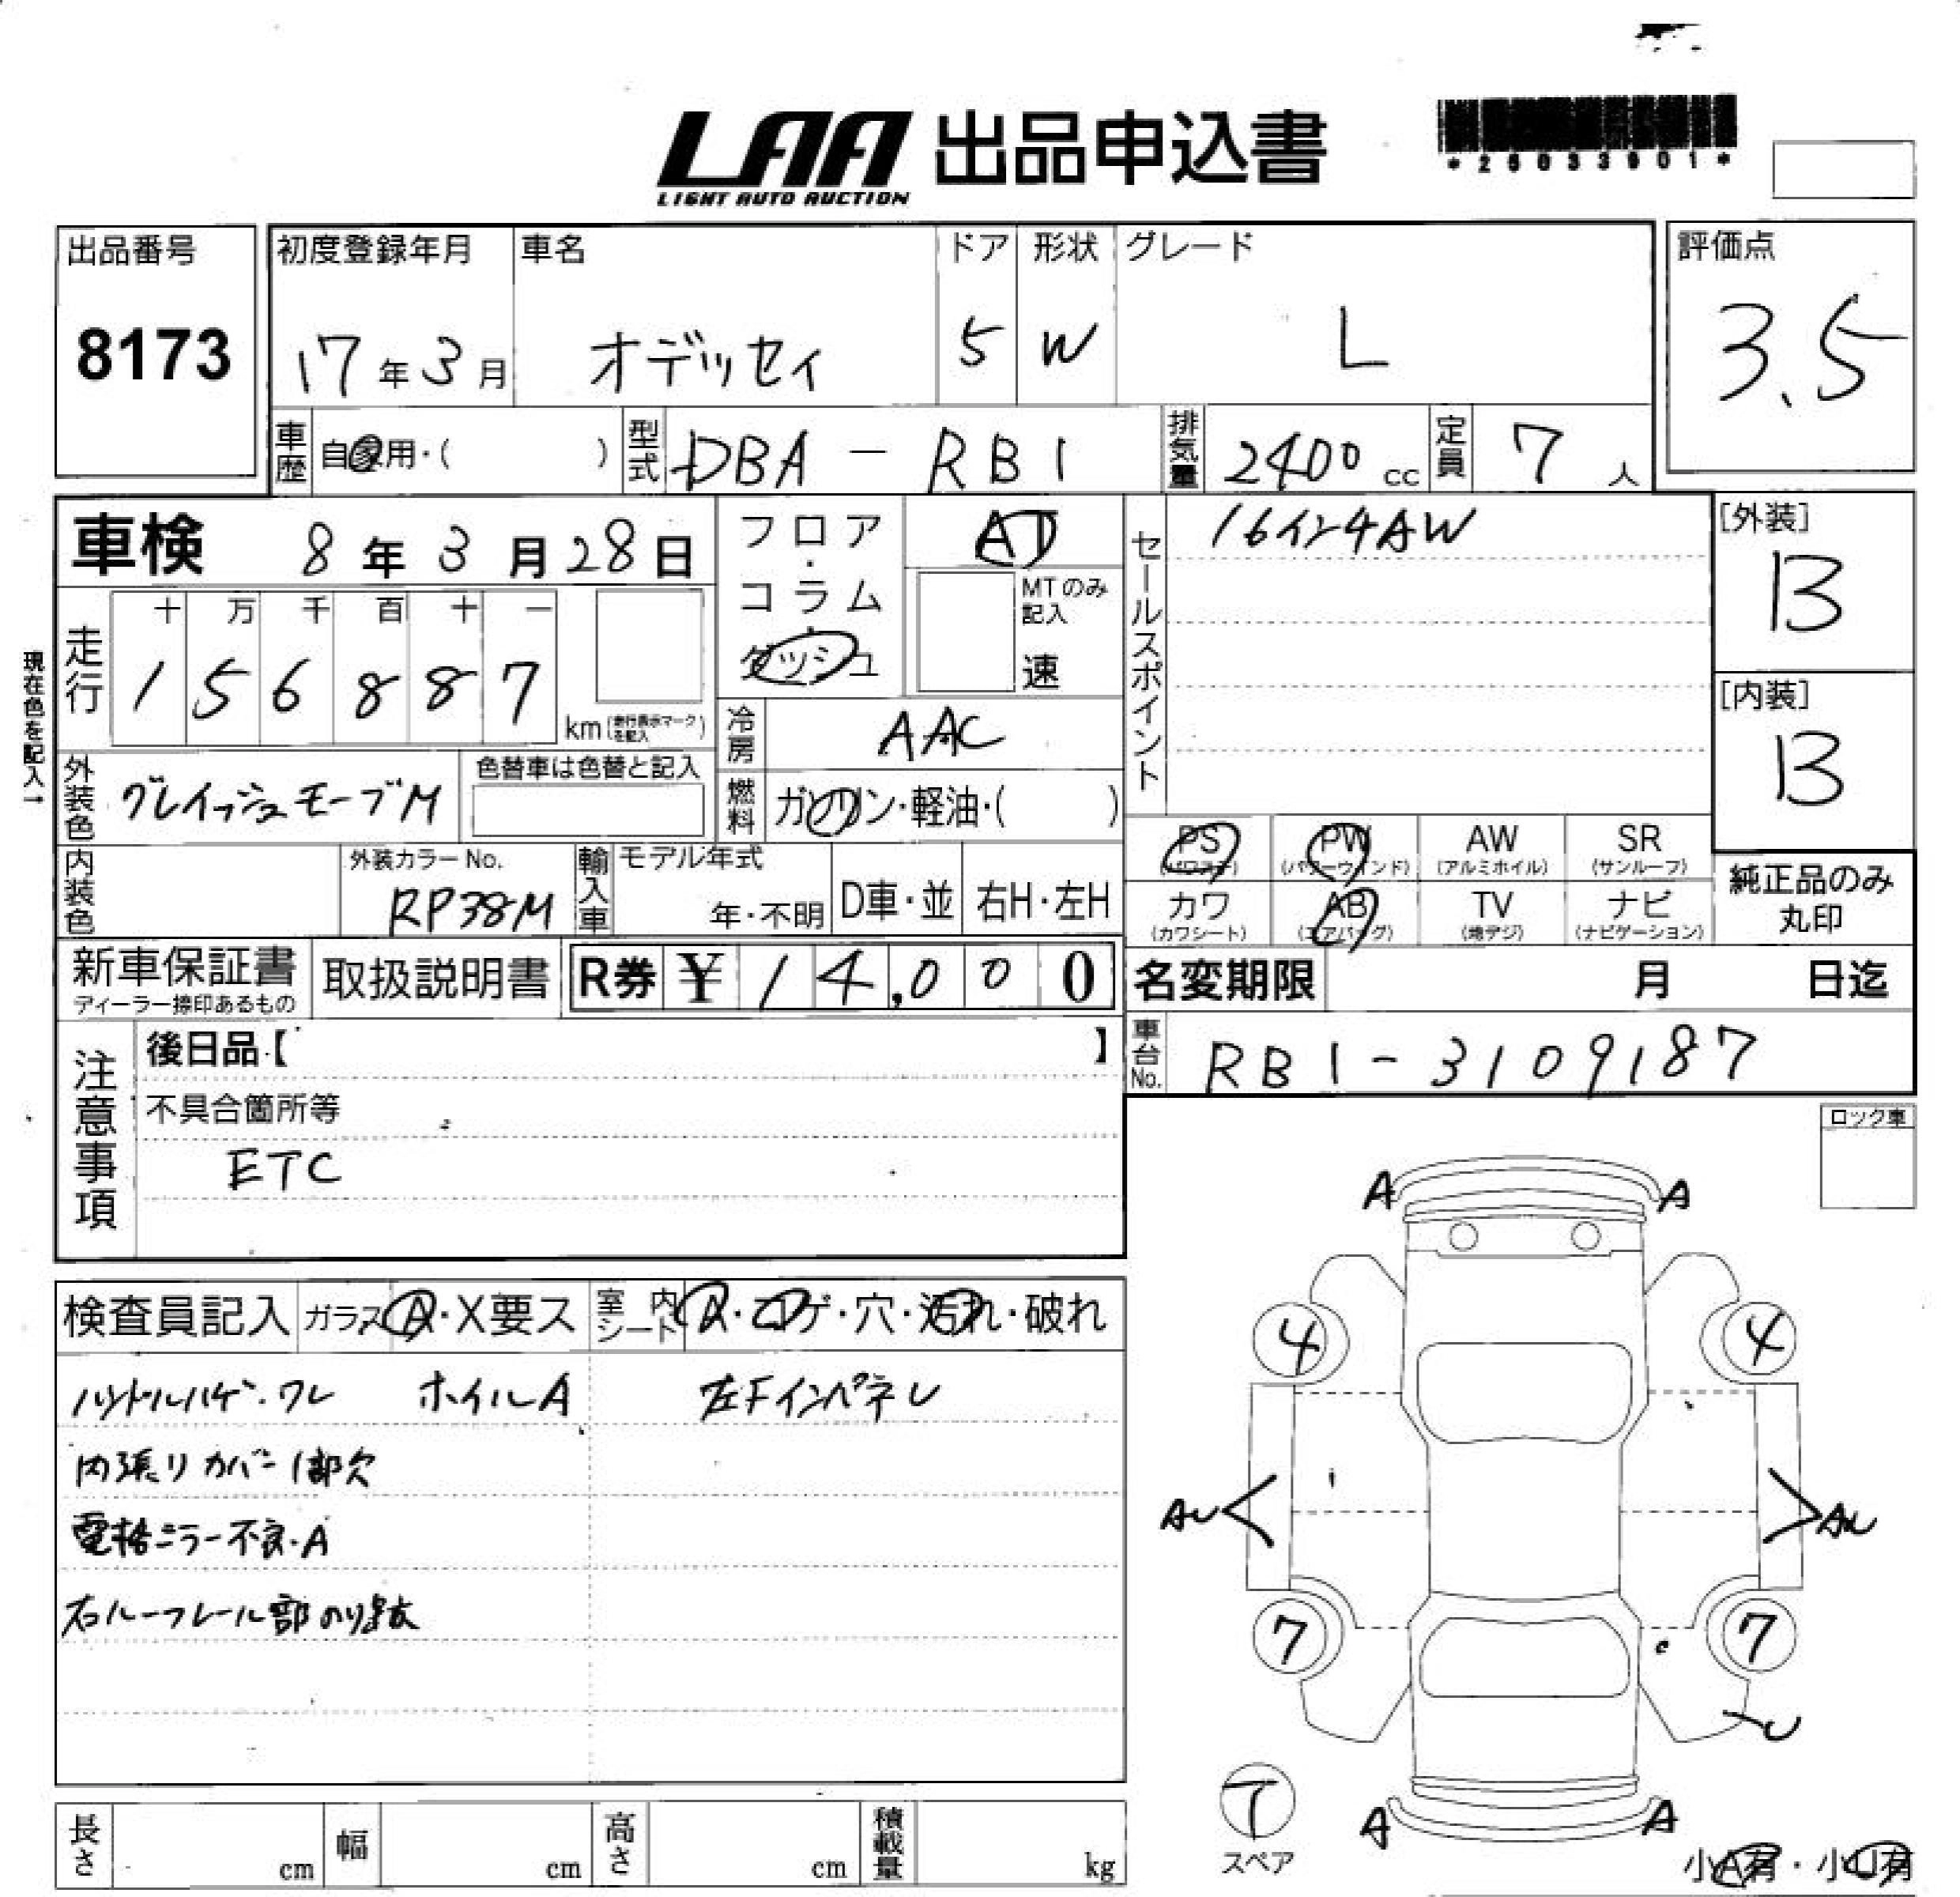 LAA 出品申込書
LIGHT AUTO AUCTION
出品番号
8173
初度登録年月
17年3月
車名
オデッセイ
ドア
5
形状
W
グレード
L
評価点
3.5
車歴 自家用・( )
型式 DBA-RB1
排気量 2400 cc
定員 7 人
車検 8年3月28日
フロア・コラム・ダッシュ
AT
MTのみ記入
速
現在色を記入→
走行
十 万 千 百 十 一
1 5 6 8 8 7
km (走行表示マークを記入)
冷房 AAC
外装色 グレイッシュモーブM
色替車は色替と記入
燃料 ガソリン・軽油・( )
内装色
外装カラーNo.
RP38M
輸入車
モデル年式
年・不明
D車・並
右H・左H
セールスポイント
16インチAW
[外装]
B
[内装]
B
PS (パワステ)
PW (パワーウインド)
AW (アルミホイル)
SR (サンルーフ)
カワ (カワシート)
AB (エアバッグ)
TV (地デジ)
ナビ (ナビゲーション)
純正品のみ丸印
新車保証書
ディーラー捺印あるもの
取扱説明書
R券 ¥ 14,000
名変期限 月 日迄
車台No. RB1-3109187
注意事項
後日品【 】
不具合箇所等
ETC
ロック車
検査員記入
ガラス A・X要ス
室内シート A・コゲ・穴・汚れ・破れ
ハンドルハゲ・ワレ ホイルA 左FインパネU
内張りカバー1部欠
電格ミラー不良・A
右ルーフレール部のり跡
A A
4 4
AU AU
7 7
U
T
スペア
A A
小A有・小U有
長さ cm
幅 cm
高さ cm
積載量 kg